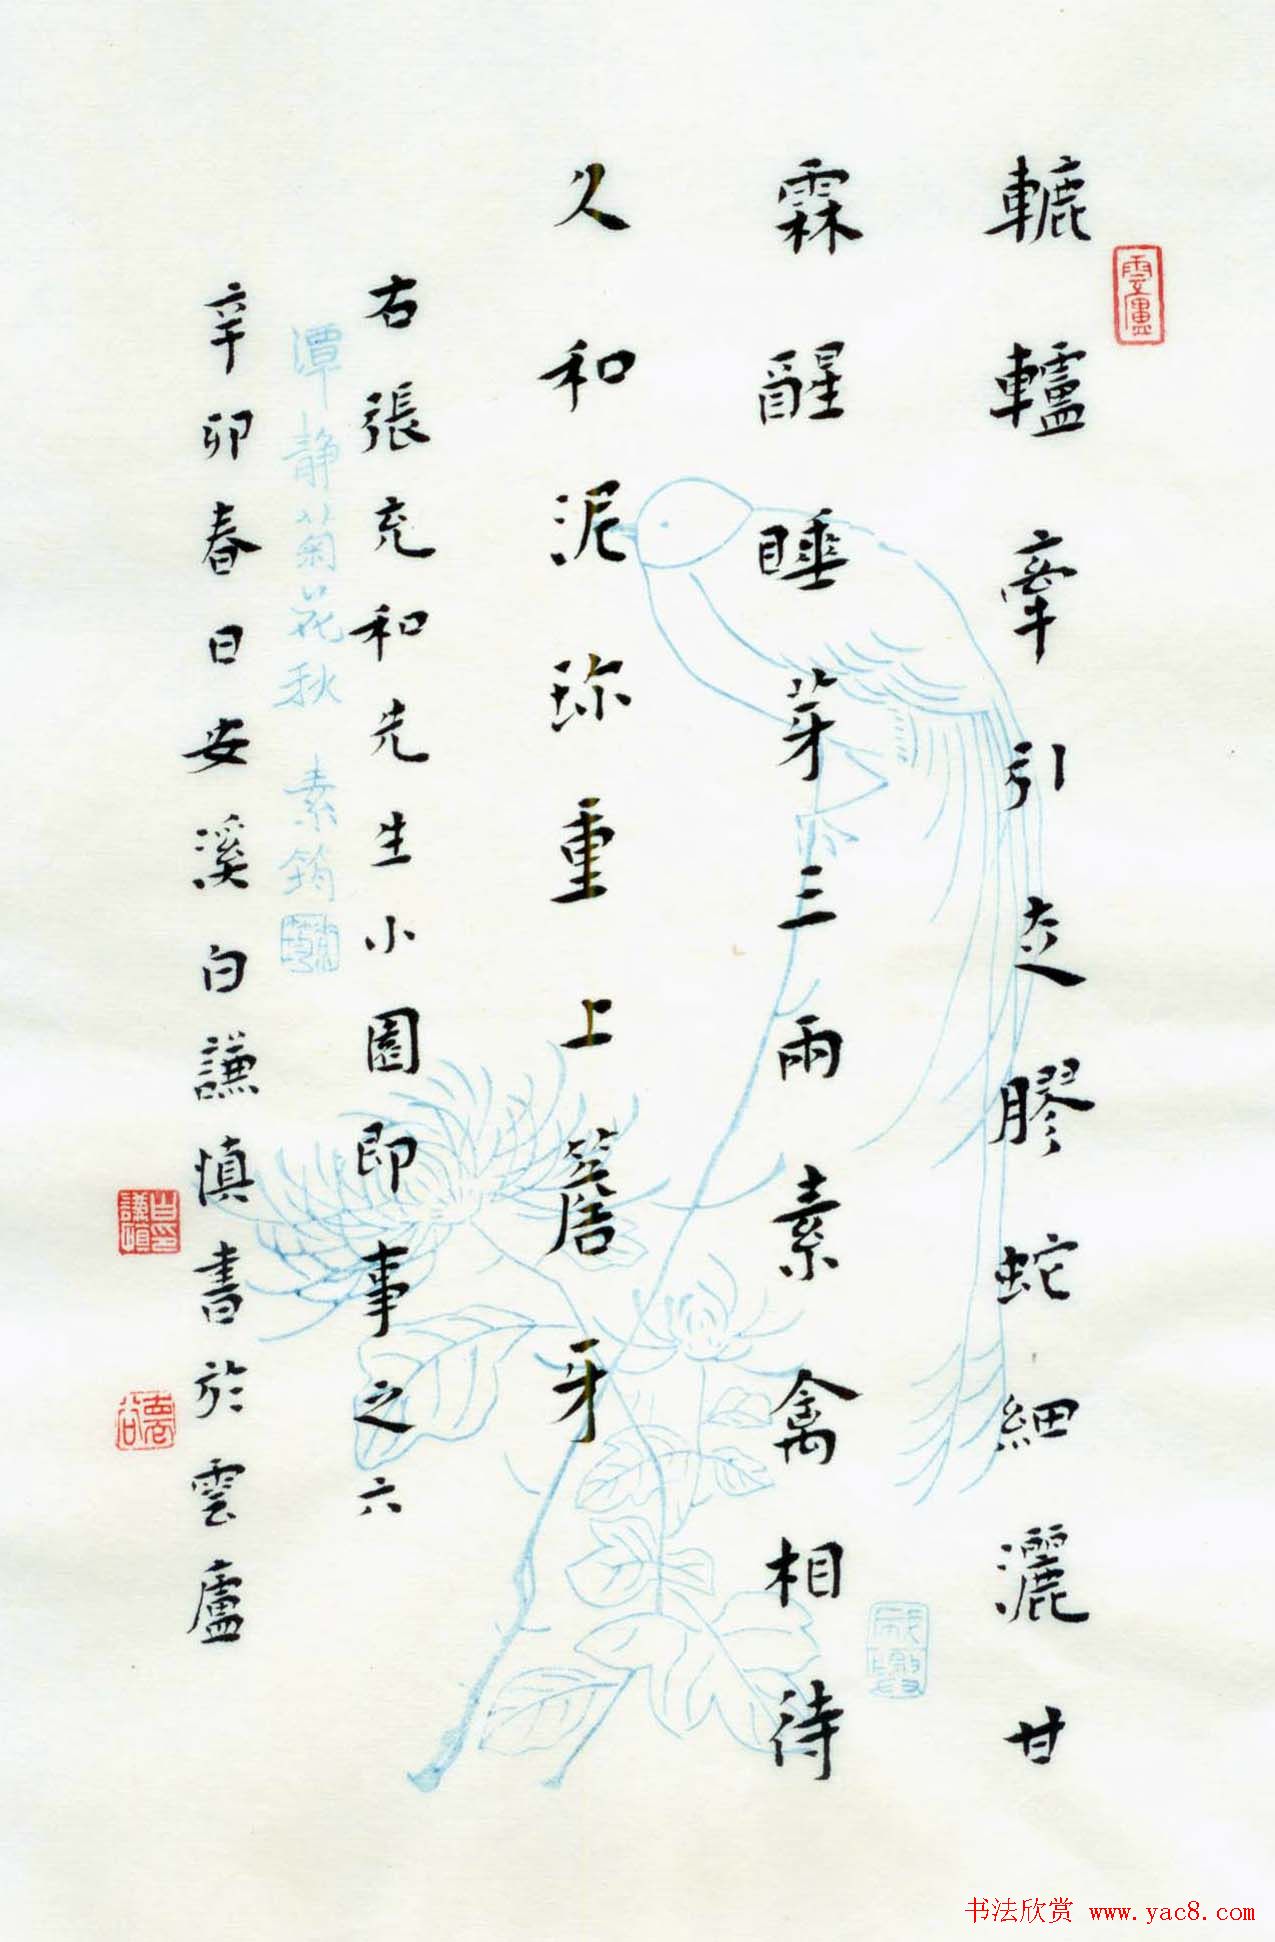 雲廬
轆轤牽引走膠蛇細灑甘
霖醒睡芽三兩素禽相待
久和泥珎重上簷牙
右張充和先生小園即事之六
潭静菊花秋 素筠
辛卯春日安溪白謙慎書於雲廬
白謙慎印
书法欣赏 www.yac8.com